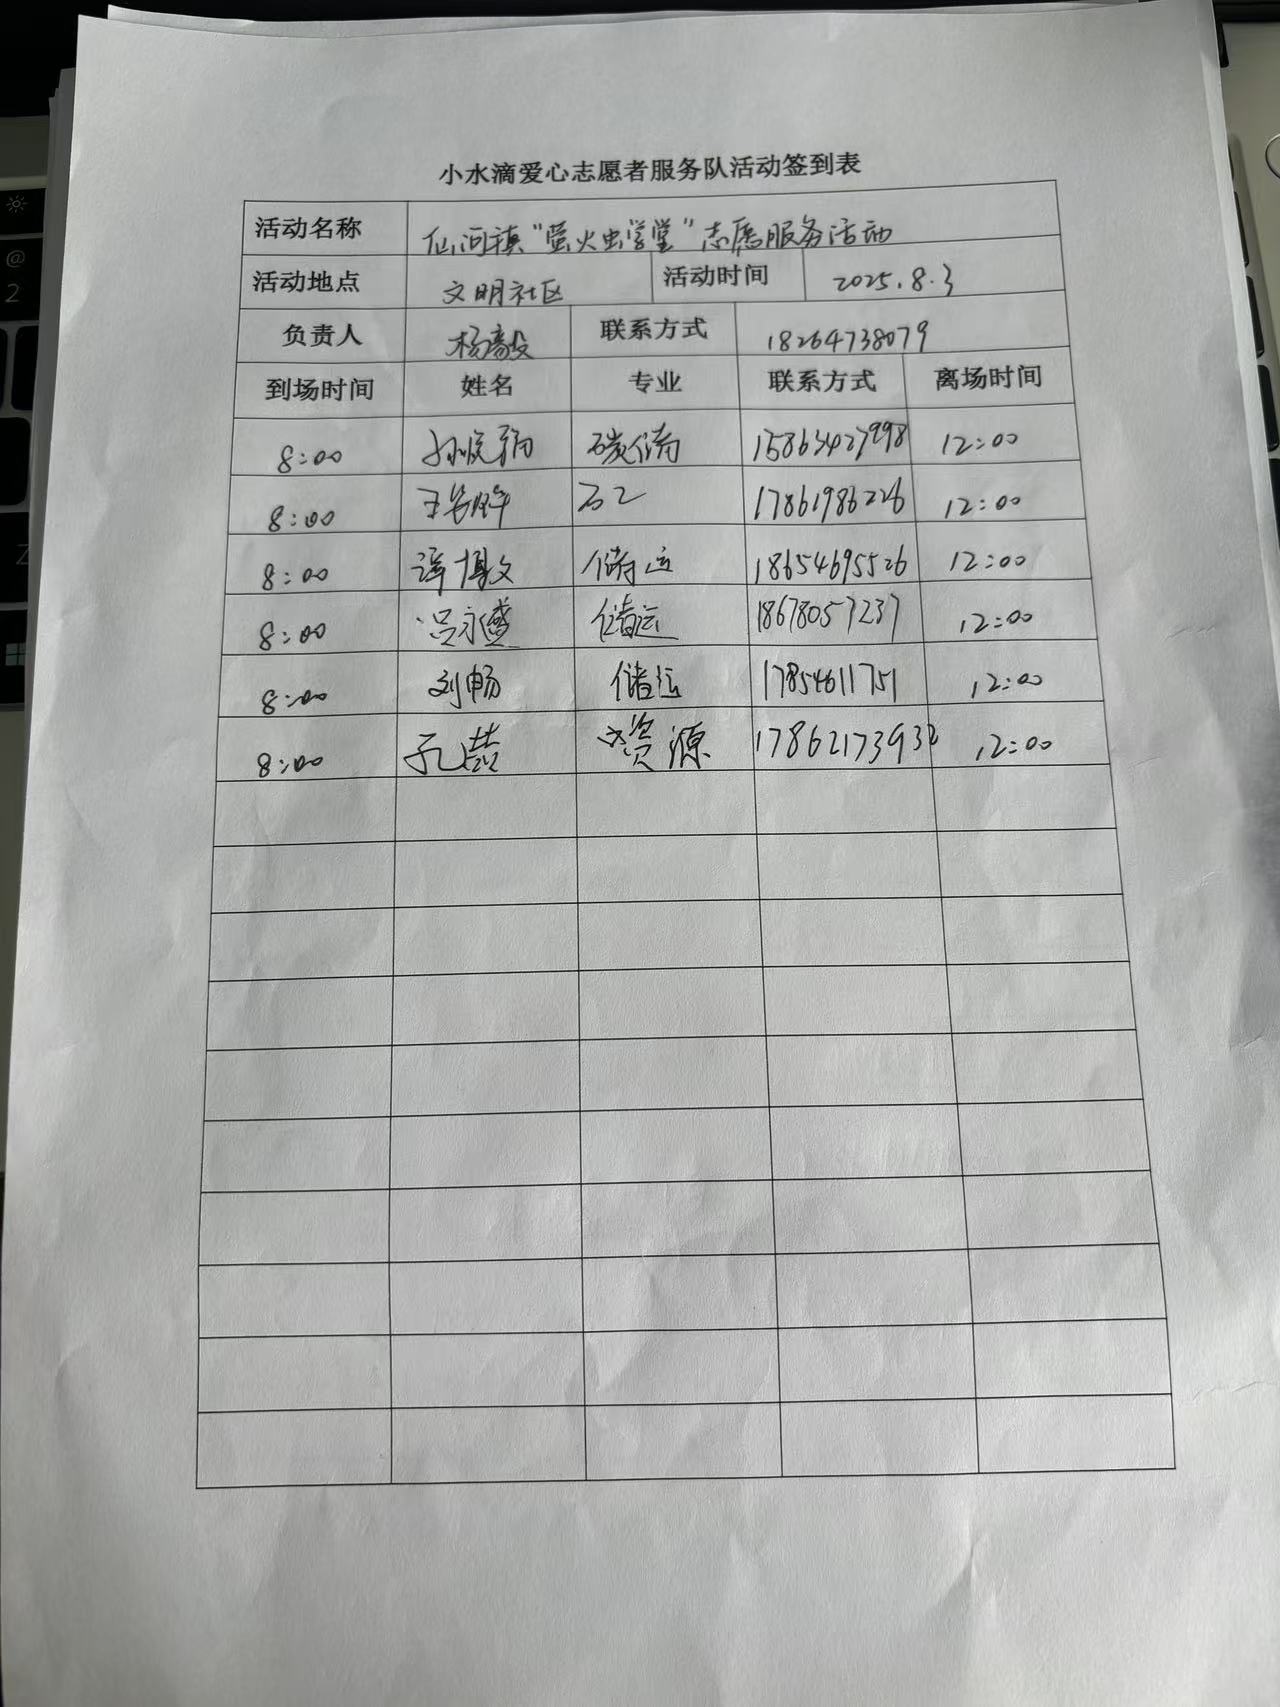 小水滴爱心志愿者服务队活动签到表
活动名称 仙河镇“萤火虫学堂”志愿服务活动
活动地点 文明社区 活动时间 2025.8.3
负责人 杨毅 联系方式 18264738079
到场时间 姓名 专业 联系方式 离场时间
8:00 碳储 15863427998 12:00
8:00 石工 17861986226 12:00
8:00 谭博文 储运 18654695526 12:00
8:00 吕永盛 储运 18678057237 12:00
8:00 刘畅 储运 17854611751 12:00
8:00 孔喆 资源 17862173932 12:00